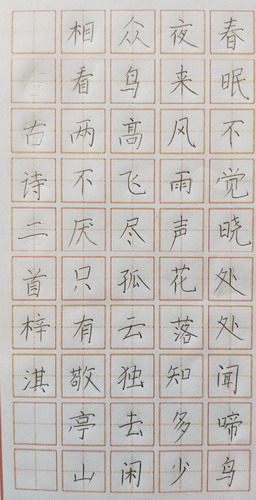 春眠不觉晓处处闻啼鸟
夜来风雨声花落知多少
众鸟高飞尽孤云独去闲
相看两不厌只有敬亭山
古诗二首梓淇